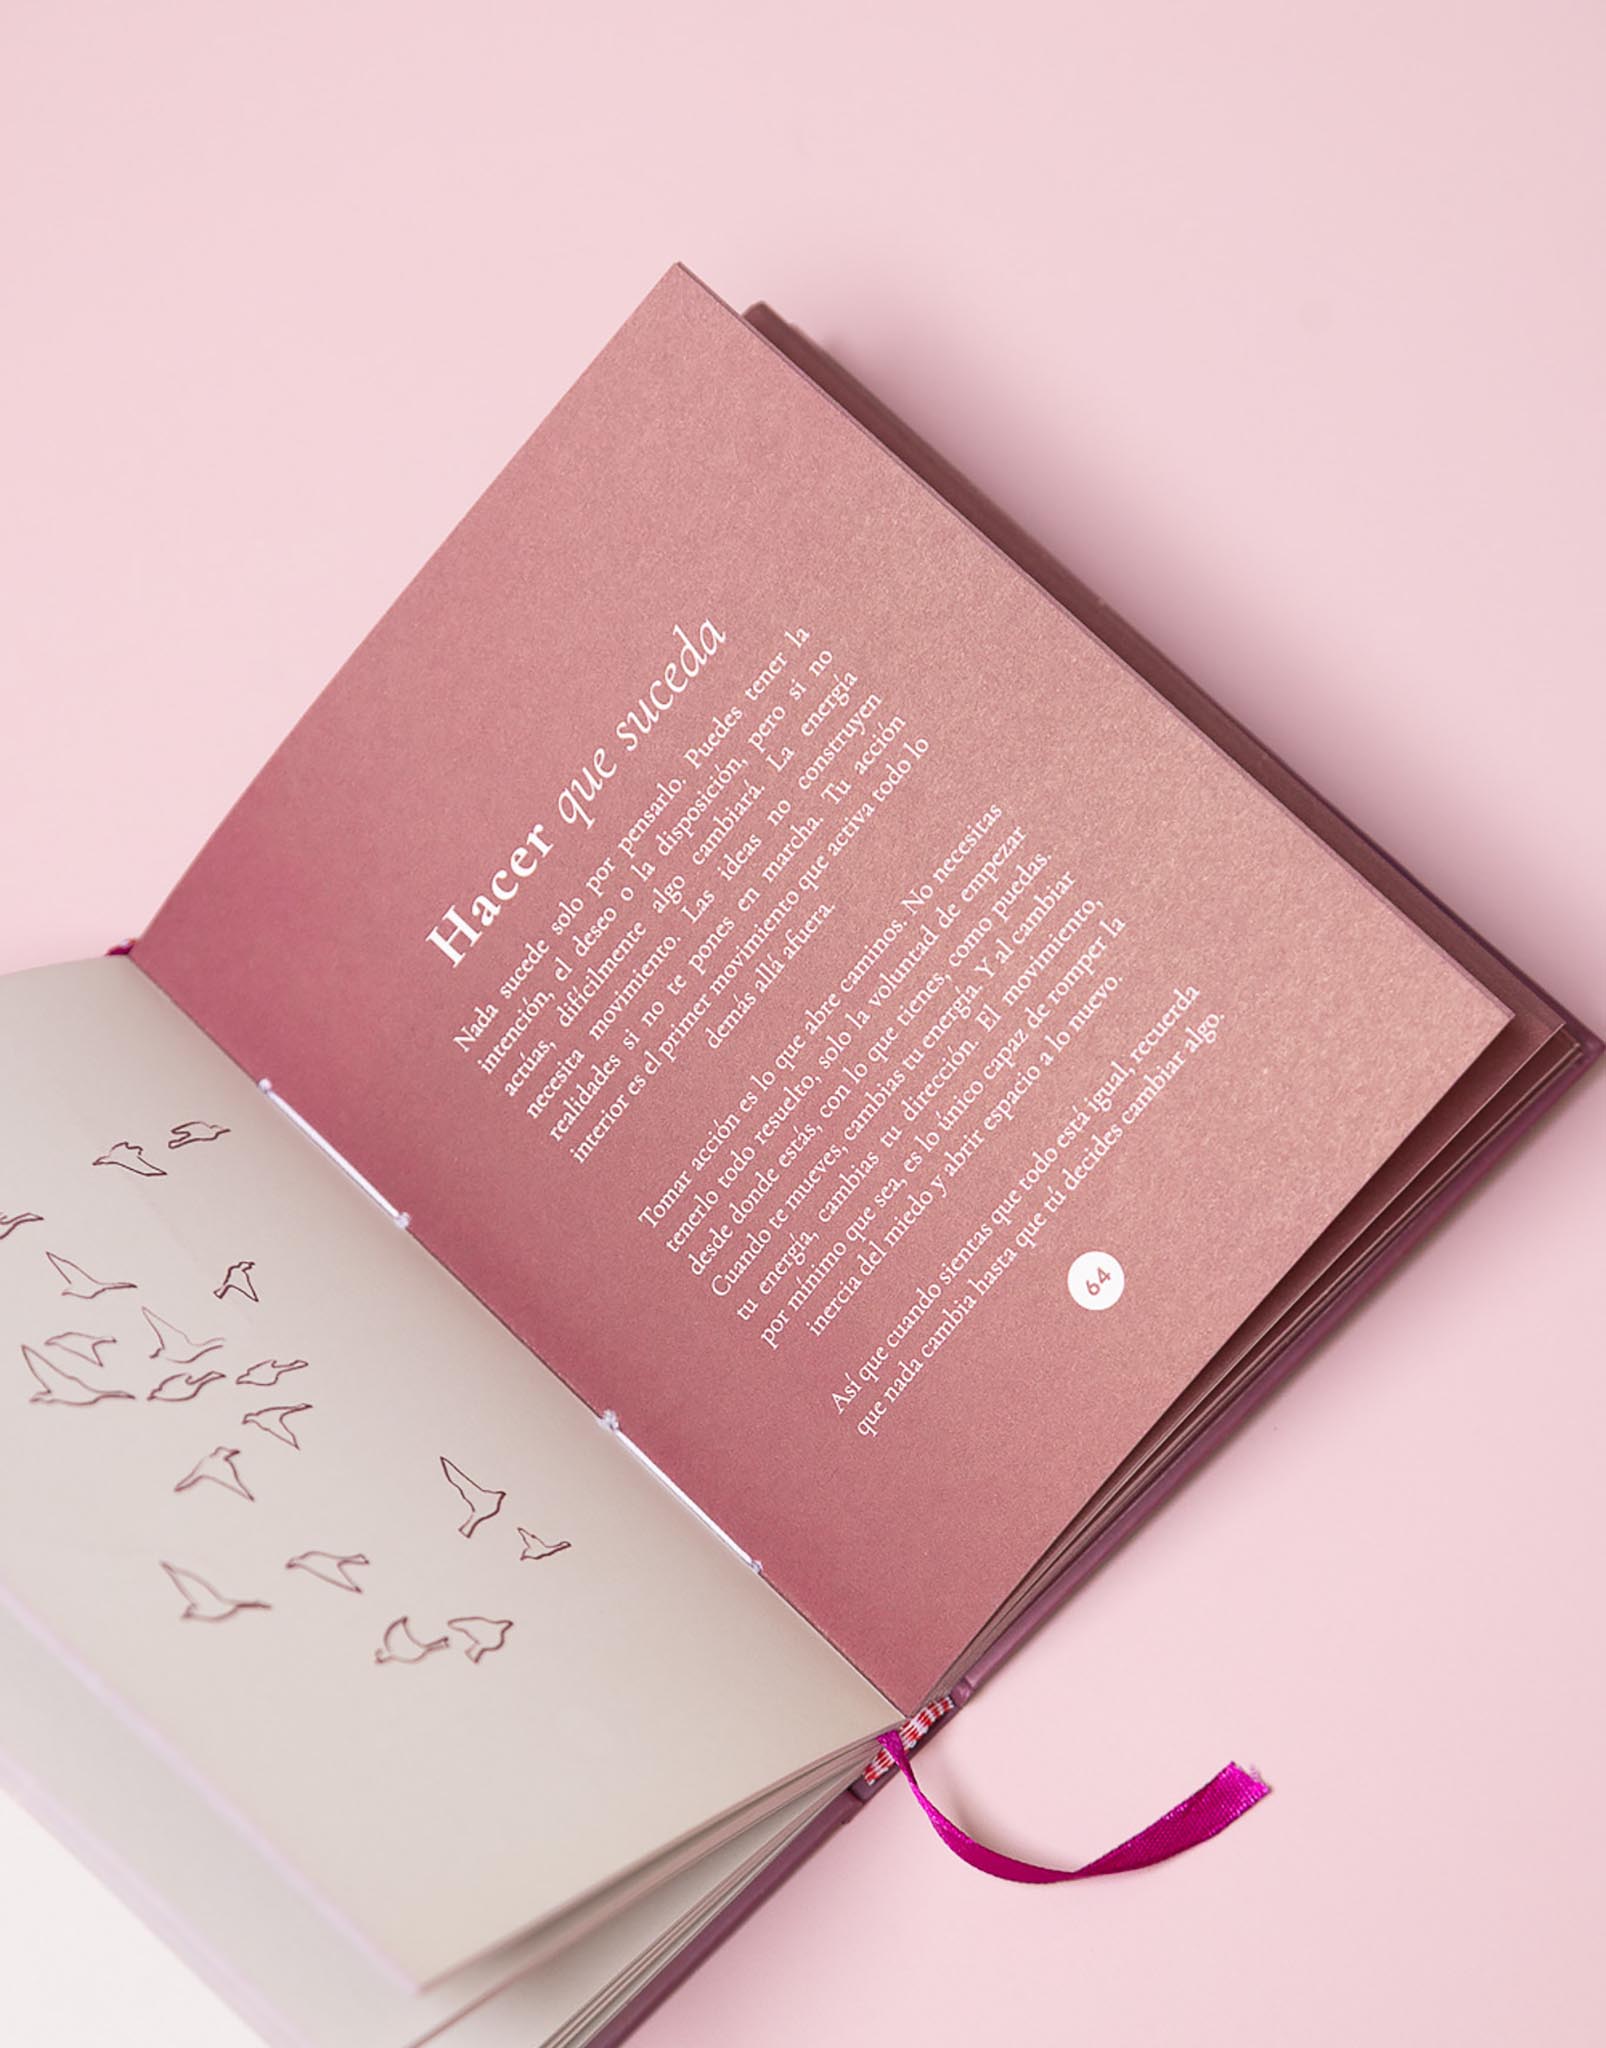 Hacer que suceda
Nada sucede solo por pensarlo. Puedes tener la
intención, el deseo o la disposición, pero si no
actúas, difícilmente algo cambiará. La energía
necesita movimiento. Las ideas no construyen
realidades si no te pones en marcha. Tu acción
interior es el primer movimiento que activa todo lo
demás allá afuera.
Tomar acción es lo que abre caminos. No necesitas
tenerlo todo resuelto, solo la voluntad de empezar
desde donde estás, con lo que tienes, como puedas.
Cuando te mueves, cambias tu energía. Y al cambiar
tu energía, cambias tu dirección. El movimiento,
por mínimo que sea, es lo único capaz de romper la
inercia del miedo y abrir espacio a lo nuevo.
Así que cuando sientas que todo está igual, recuerda
que nada cambia hasta que tú decides cambiar algo.
64